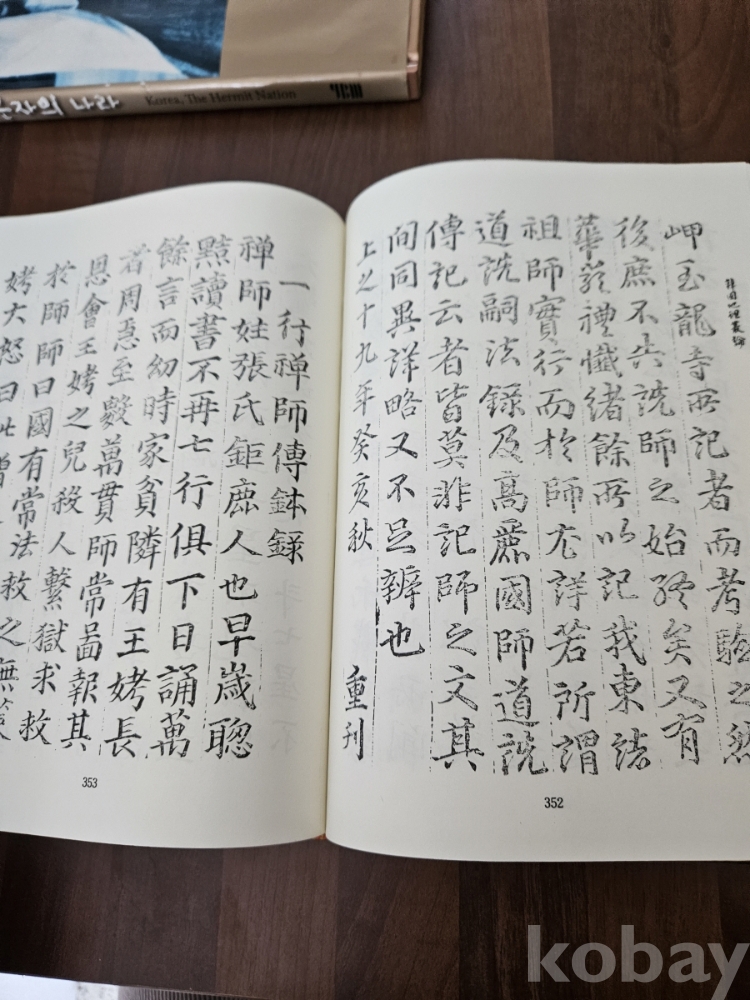 자의 나라 Korea, The Hermit Nation
岬玉龍寺所記者而考驗之然
後庶不失詵師之始終矣又有
華嚴禮懺緒餘所以記我東諸
祖師實行而於師尤詳若所謂
道詵嗣法錄及高麗國師道詵
傳記云者皆莫非記師之文其
间同異詳略又不足辨也
上之十九年癸亥秋 重刊
352
一行禅師傳鉢録
禅師姓張氏鉅鹿人也早歲聰
黠讀書不再七行俱下日誦萬
餘言而幼時家貧隣有王姥長
者周急至數萬貫師常啚報其
恩會王姥之兒殺人繫獄求救
於師師曰國有常法救之無
姥大怒曰此僧
353
kobay